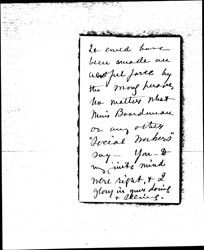 It could have
been made an
awful farce by
the wrong person,
No matter what
Miss Boardman
or any other
"Social Workers"
say — You & 
my mind
were right, & I
glory in your doing
& being.